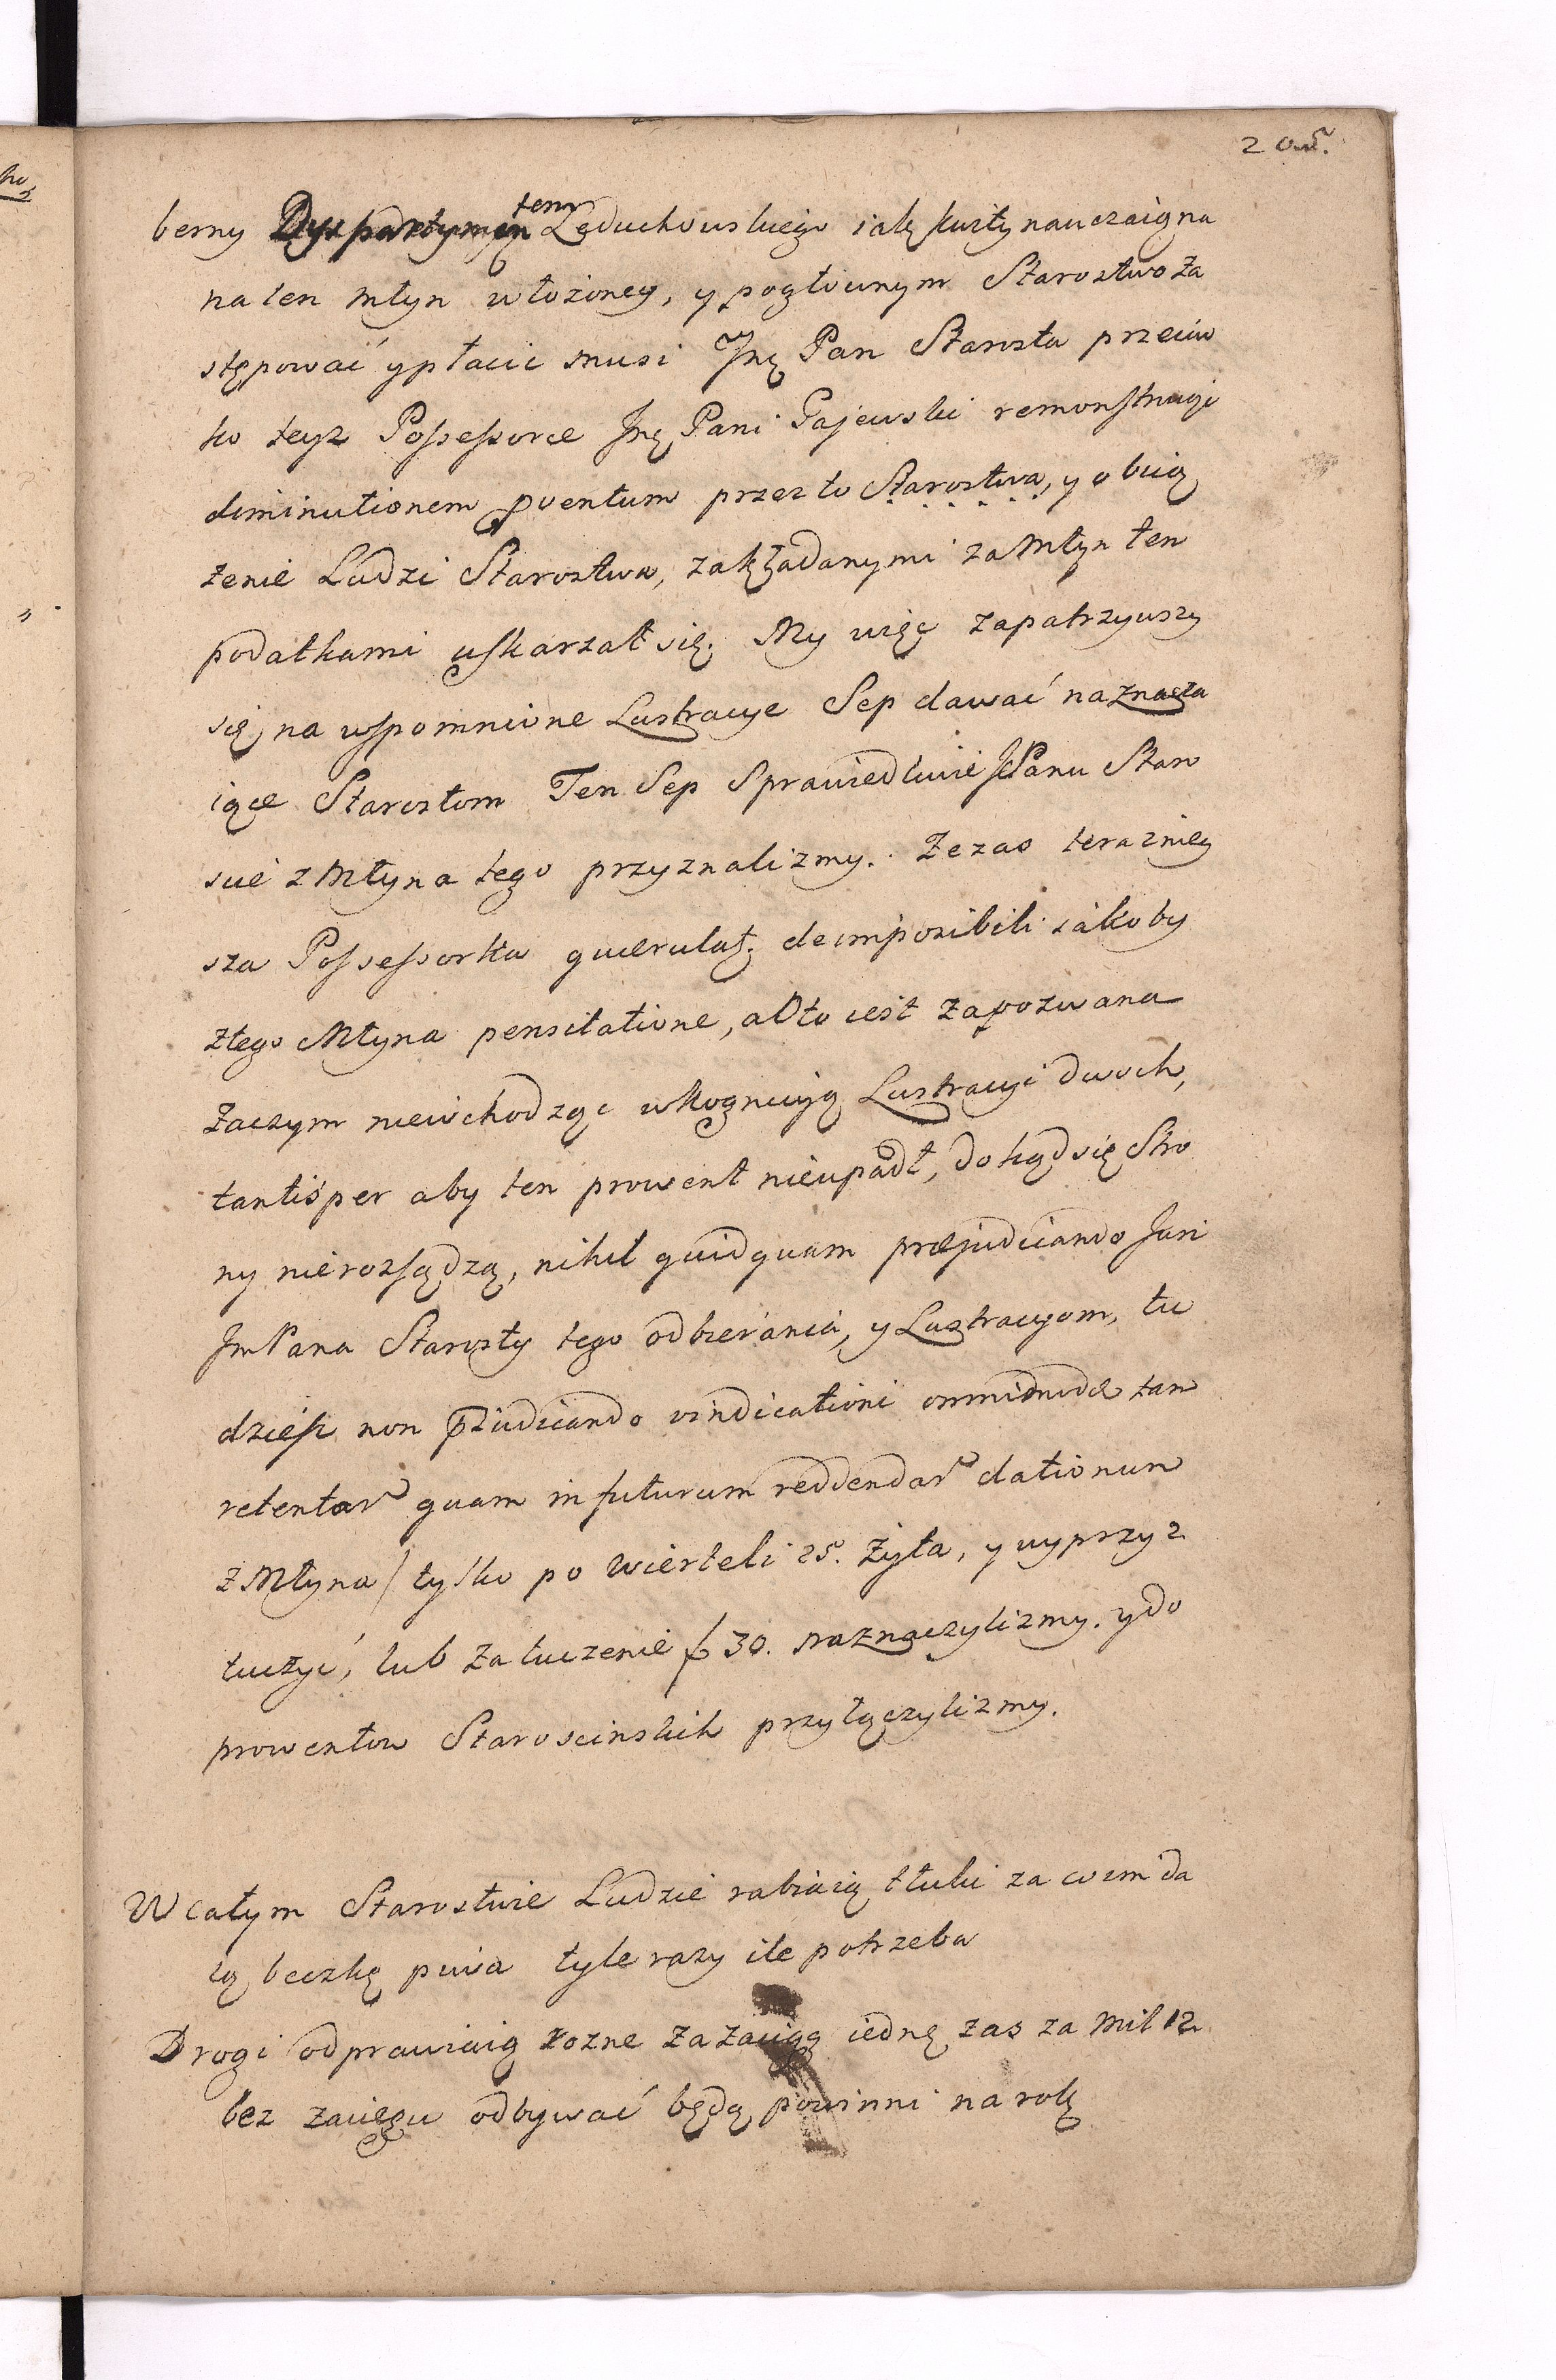 berny Dyspartymentem Lęduchowskiego
na ten Młyn włożoney, y pogłownym Starostwo za
stępować y płacic musi Jmę Pan Starosta przeciw
ko teyz Possessorce Jmę Pani Gajewski remonstruąc
diminutionem pventum przez to Starostwa, y obcią
żenie Ludzi Starostwa, zakładanymi za Młyn ten
podatkami uskarzał się. My więc zapatrzywszy
się na wspomnione Lustracye Sep dawać naznacza
iące Starostom Ten Sep Sprawiedliwie JPanu Staro
scie z Młyna tego przyznalizmy. Ze zas terazniey
sza Possessorka querulat. de impossibili iakoby
z tego Młyna pensitatione, a o to iest zapozwana
zaczym niewchodząc w kognicyą Lustracyi dwoch,
tantisper aby ten prowent nieupadł, dokąd się Stro
ny nierozsądzą, nihil quidquam præjudiciando Juri
JmPana Starosty tego odbierania, y Lustracyom, tu
dziesz non pziudicando vindicationi omnimodæ tam
retentar quam in futurum reddendar dationum
z Młyna / tylko po wierteli 25. żyta, y wyprzy 2
tuczyć, lub za tuczenie f 30. naznaczylizmy. y do
prowentow Staroscinskich przyłączylizmy.
W całym Starostwie Ludzie rabiaią tłuki za co im da
ią beczkę piwa tyle razy ile potrzeba
Drogi odprawiaią rozne za zaciąg iednę zas za Mil 12
bez zaciągu odbywać będą powinni na rok